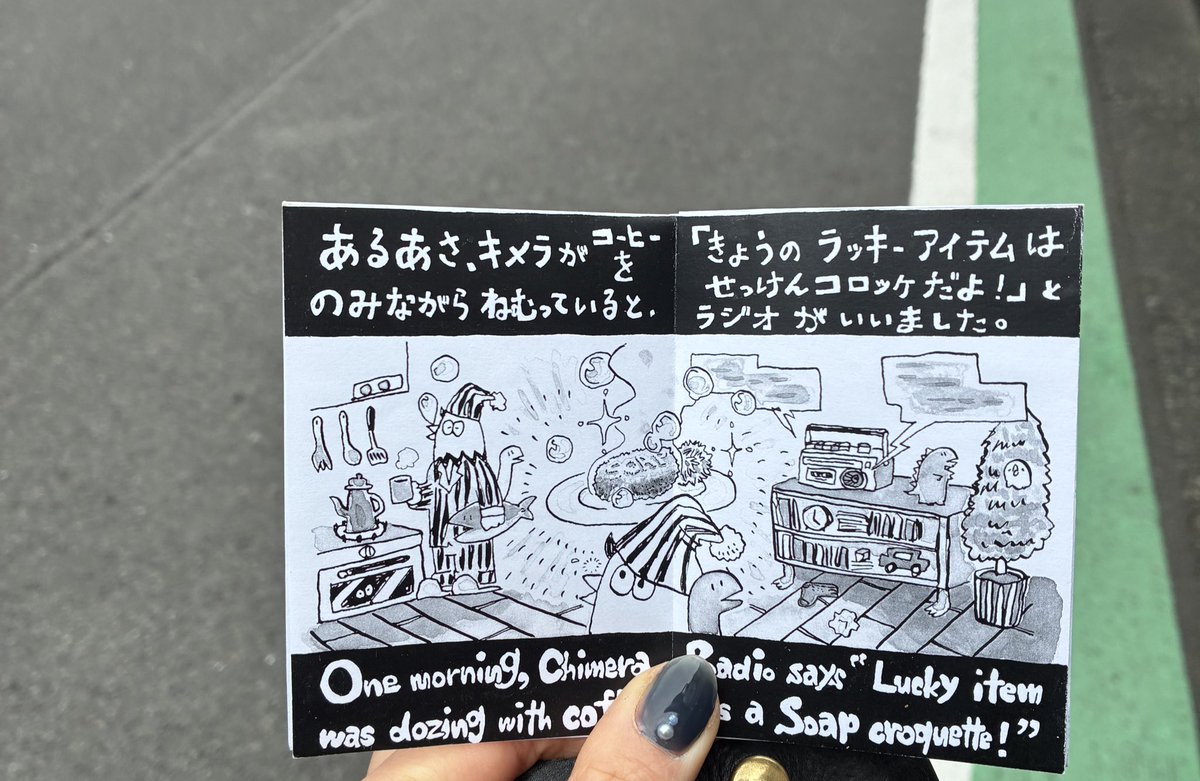 あるあさ、キメラがコーヒーを
のみながら ねむっていると、
「きょうの ラッキーアイテムは
せっけんコロッケだよ！」と
ラジオがいいました。
One morning, Chimera
was dozing with
Radio says “Lucky item
a Soap croquette!”